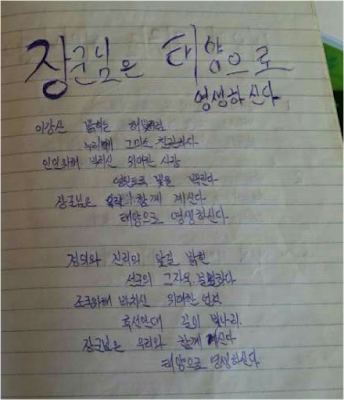 장군님은 태양으로
영생하신다
이강산
누리에 그 미소 친근하다
인민위해 바치신 위대한 사랑
빛을 뿌린다
장군님은 함께 계신다
태양으로 영생하신다
정의와 진리의 앞길 밝힌
선군의 그 자욱
조국위해 바치신 위대한 업적
길이 빛나리
장군님은 우리와 함께 계신다
태양으로 영생하신다